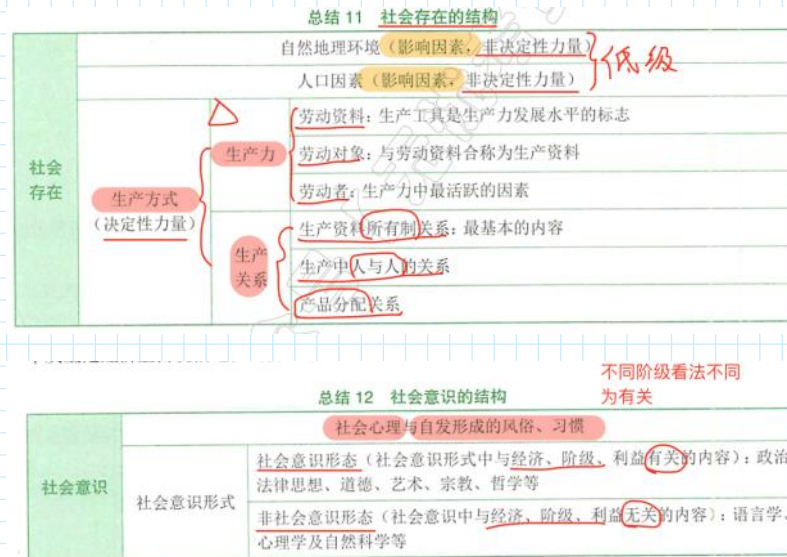 总结 11 社会存在的结构
自然地理环境（影响因素，非决定性力量）
人口因素（影响因素，非决定性力量）
低级
社会
存在
生产方式
（决定性力量）
生产力
劳动资料：生产工具是生产力发展水平的标志
劳动对象：与劳动资料合称为生产资料
劳动者：生产力中最活跃的因素
生产
关系
生产资料所有制关系：最基本的内容
生产中人与人的关系
产品分配关系
不同阶级看法不同
为有关
总结 12 社会意识的结构
社会意识
社会心理与自发形成的风俗、习惯
社会意识形式
社会意识形态（社会意识形式中与经济、阶级、利益有关的内容）：政治
法律思想、道德、艺术、宗教、哲学等
非社会意识形态（社会意识中与经济、阶级、利益无关的内容）：语言学、
心理学及自然科学等